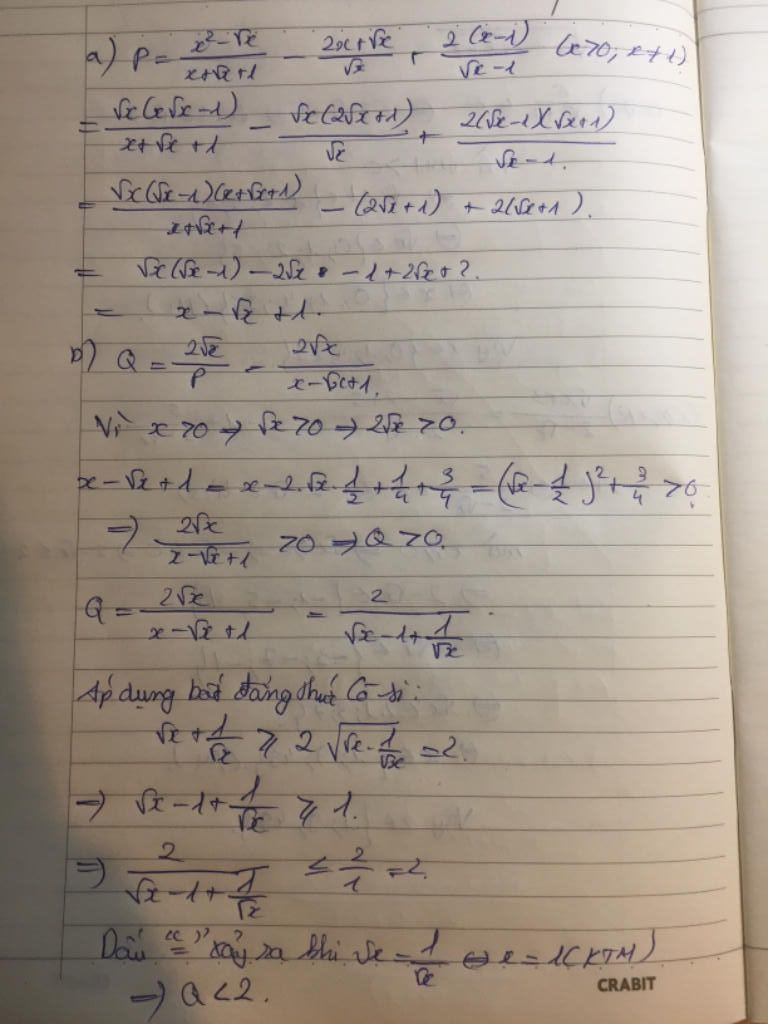 a) P = \frac{x^2 - \sqrt{x}}{x + \sqrt{x} + 1} - \frac{2x + \sqrt{x}}{\sqrt{x}} + \frac{2(x-1)}{\sqrt{x} - 1} (x>0; x≠1)
= \frac{\sqrt{x}(x\sqrt{x} - 1)}{x + \sqrt{x} + 1} - \frac{\sqrt{x}(2\sqrt{x} + 1)}{\sqrt{x}} + \frac{2(\sqrt{x} - 1)(\sqrt{x} + 1)}{\sqrt{x} - 1}.
= \frac{\sqrt{x}(\sqrt{x} - 1)(x + \sqrt{x} + 1)}{x + \sqrt{x} + 1} - (2\sqrt{x} + 1) + 2(\sqrt{x} + 1).
= \sqrt{x}(\sqrt{x} - 1) - 2\sqrt{x} - 1 + 2\sqrt{x} + 2.
= x - \sqrt{x} + 1.
b) Q = \frac{2\sqrt{x}}{P} - \frac{2\sqrt{x}}{x - \sqrt{x} + 1}.
Vì x > 0 => \sqrt{x} > 0 => 2\sqrt{x} > 0.
x - \sqrt{x} + 1 = x - 2.\sqrt{x}.\frac{1}{2} + \frac{1}{4} + \frac{3}{4} = (\sqrt{x} - \frac{1}{2})^2 + \frac{3}{4} > 0.
=> \frac{2\sqrt{x}}{x - \sqrt{x} + 1} > 0 => Q > 0.
Q = \frac{2\sqrt{x}}{x - \sqrt{x} + 1} = \frac{2}{\sqrt{x} - 1 + \frac{1}{\sqrt{x}}}.
Áp dụng bất đẳng thức Cô si:
\sqrt{x} + \frac{1}{\sqrt{x}} ≥ 2\sqrt{\sqrt{x} . \frac{1}{\sqrt{x}}} = 2.
=> \sqrt{x} - 1 + \frac{1}{\sqrt{x}} ≥ 1.
=> \frac{2}{\sqrt{x} - 1 + \frac{1}{\sqrt{x}}} ≤ \frac{2}{1} = 2.
Dấu "=" xảy ra khi \sqrt{x} = \frac{1}{\sqrt{x}} ⇔ x = 1 (KTM)
=> Q < 2.
CRABIT